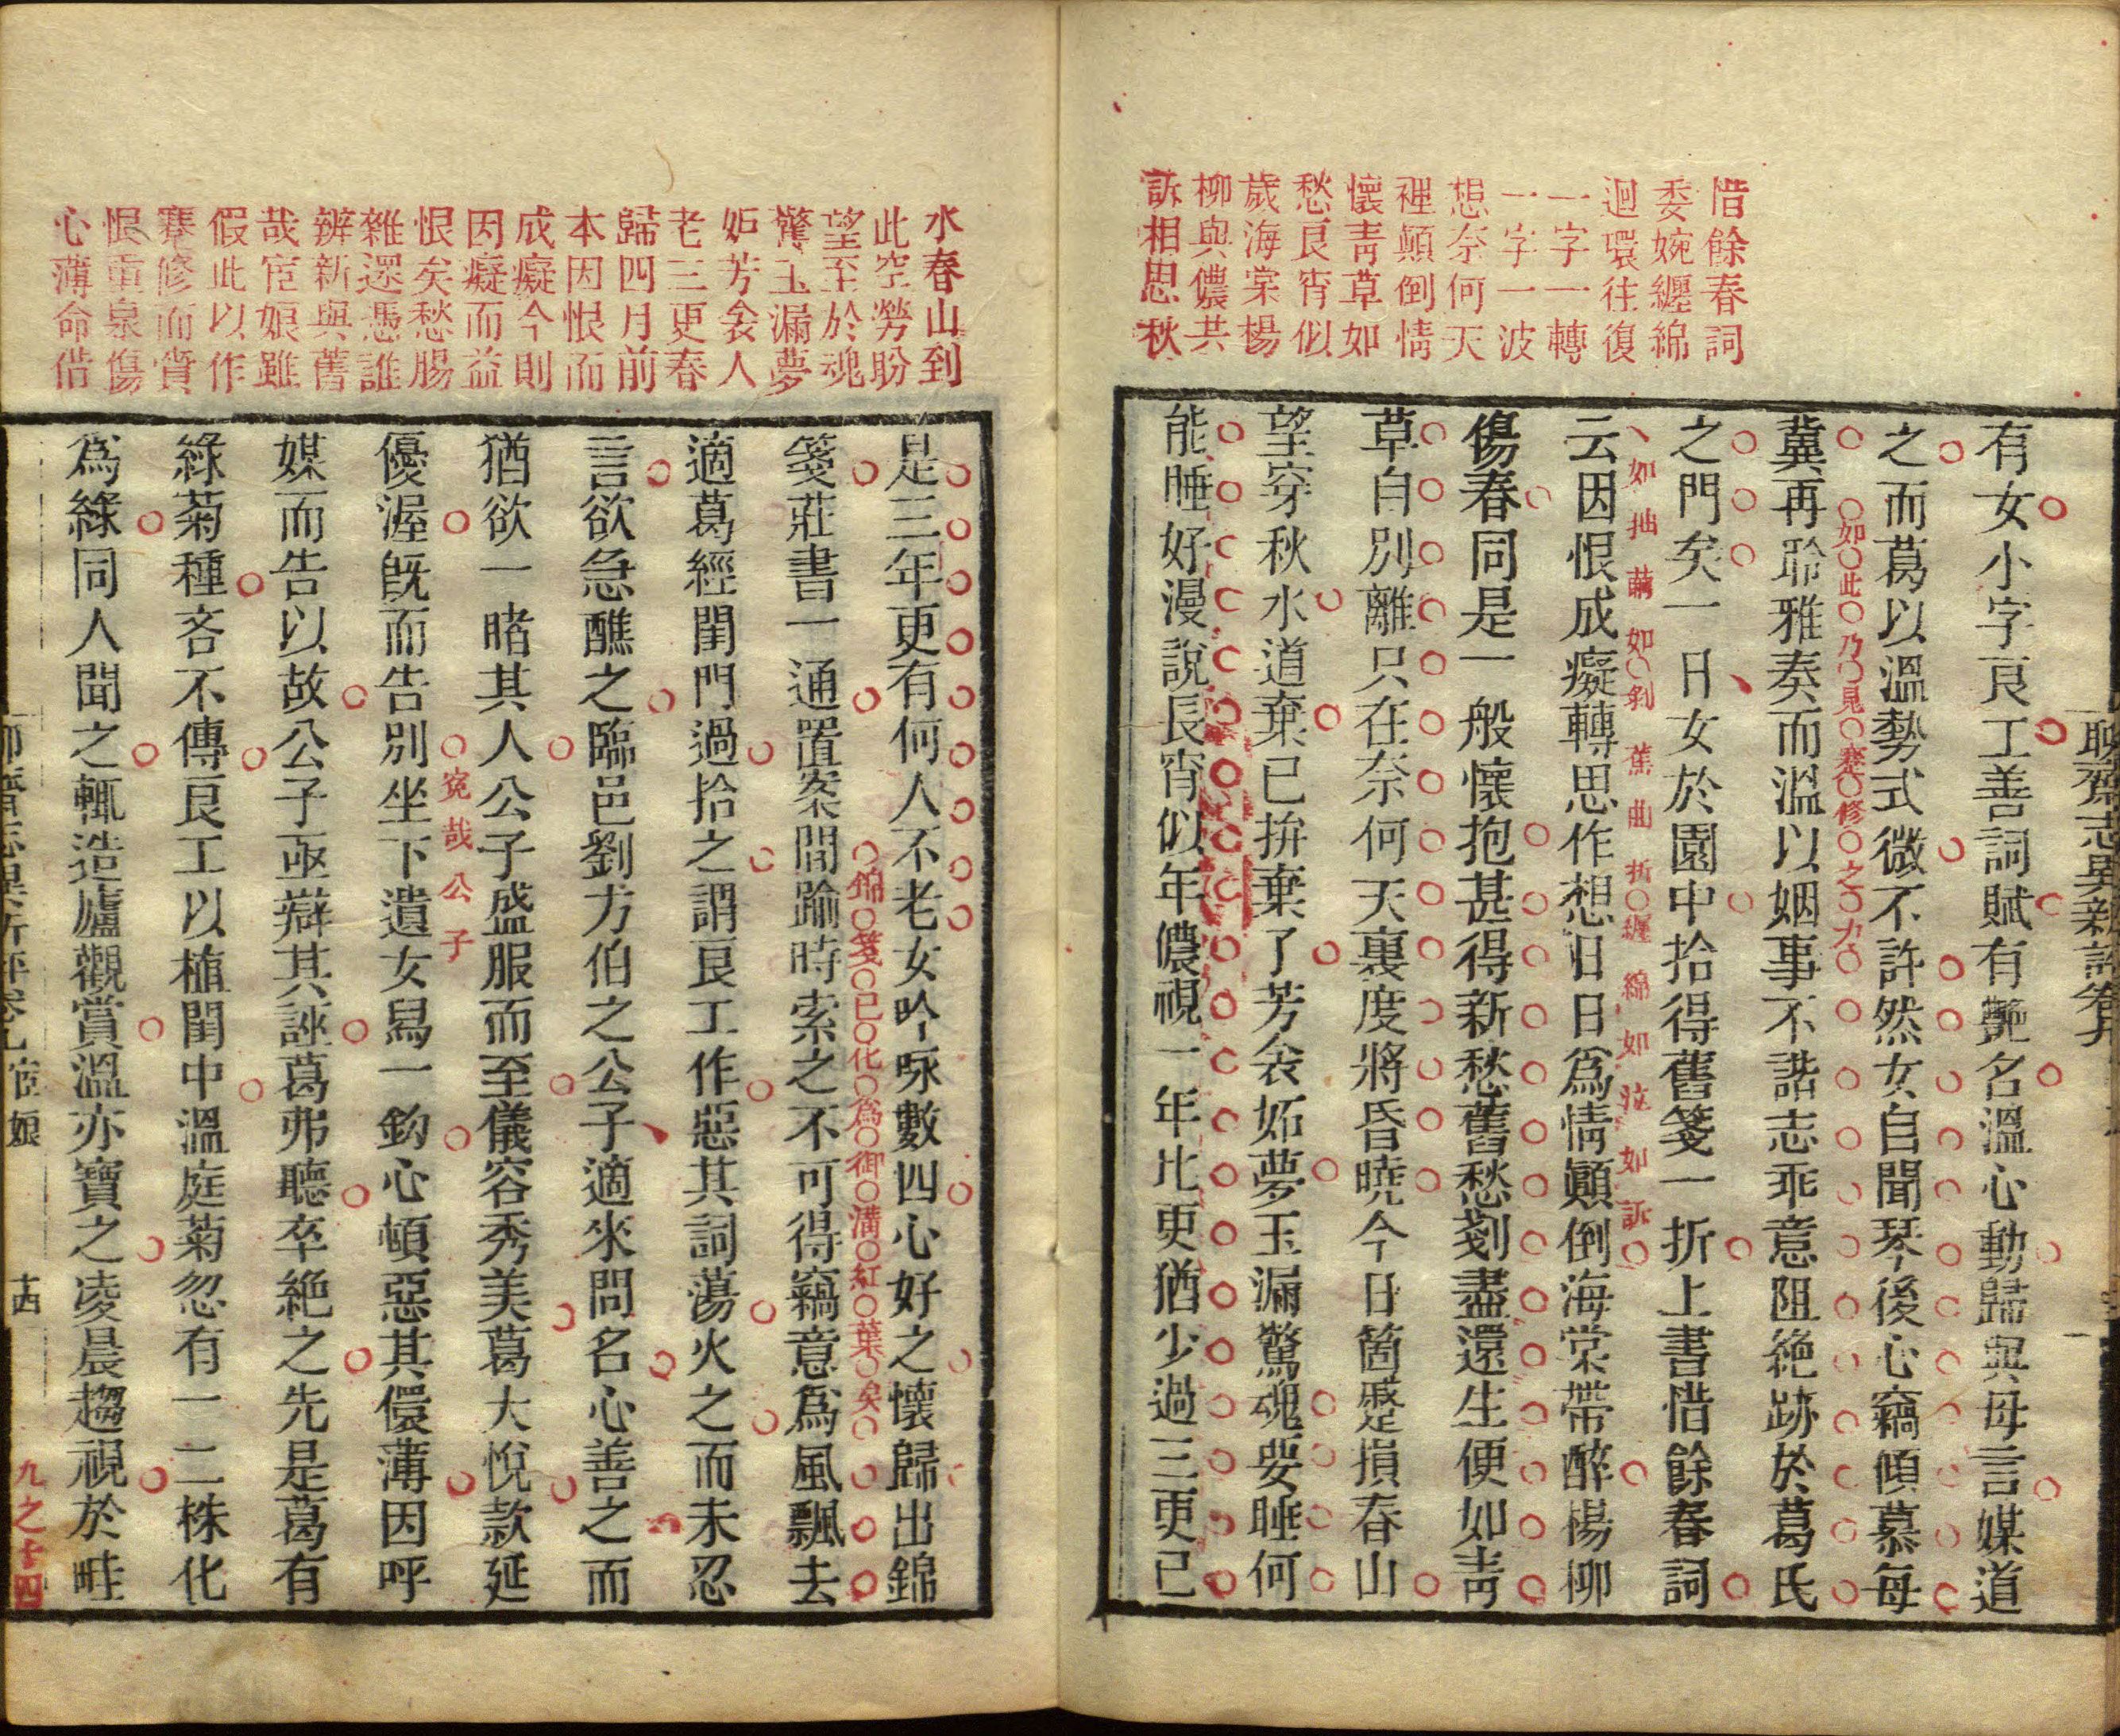 惜餘春詞
委婉纏綿
迴環往復
一字一轉
一字一波
想奈何天
裡顛倒情
懷靑草如
愁良宵似
歲海棠楊
柳與儂共
訴相思秋
有女小字良工善詞賦有艷名溫心動歸與母言媒道
之而葛以溫勢式微不許然女自聞琴後心竊傾慕每
如此乃見蹇修之力
冀再聆雅奏而溫以姻事不諧志乖意阻絶跡於葛氏
之門矣一日女於園中拾得舊箋一折上書惜餘春詞
如抽繭如剝蕉曲折纏綿如泣如訴
云因恨成癡轉思作想日日爲情顚倒海棠帶醉楊柳
傷春同是一般懷抱甚得新愁舊愁剗盡還生便如靑
草自別離只在奈何天裏度將昏曉今日箇蹙損春山
望穿秋水道棄已拚棄了芳衾妬夢玉漏驚魂要睡何
能睡好漫說長宵似年儂視一年比更猶少過三更已
水春山到
此空勞盼
望至於魂
驚玉漏夢
妬芳衾人
老三更春
歸四月前
本因恨而
成癡今則
因癡而益
恨矣愁腸
雜還憑誰
辨新與舊
哉宦娘雖
假此以作
蹇修而賫
恨重泉傷
心薄命借
是三年更有何人不老女吟咏數四心好之懷歸出錦
錦箋已化爲御溝紅葉矣
箋莊書一通置案間踰時索之不可得竊意爲風飄去
適葛經閨門過拾之謂良工作惡其詞蕩火之而未忍
言欲急醮之臨邑劉方伯之公子適來問名心善之而
猶欲一睹其人公子盛服而至儀容秀美葛大悅款延
寃哉公子
優渥旣而告別坐下遺女舄一鈎心頓惡其儇薄因呼
媒而告以故公子亟辯其誣葛弗聽卒絶之先是葛有
綠菊種吝不傳良工以植閨中溫庭菊忽有一二株化
爲綠同人聞之輒造廬觀賞溫亦寶之凌晨趨視於畦
宦娘
十四
九之十四